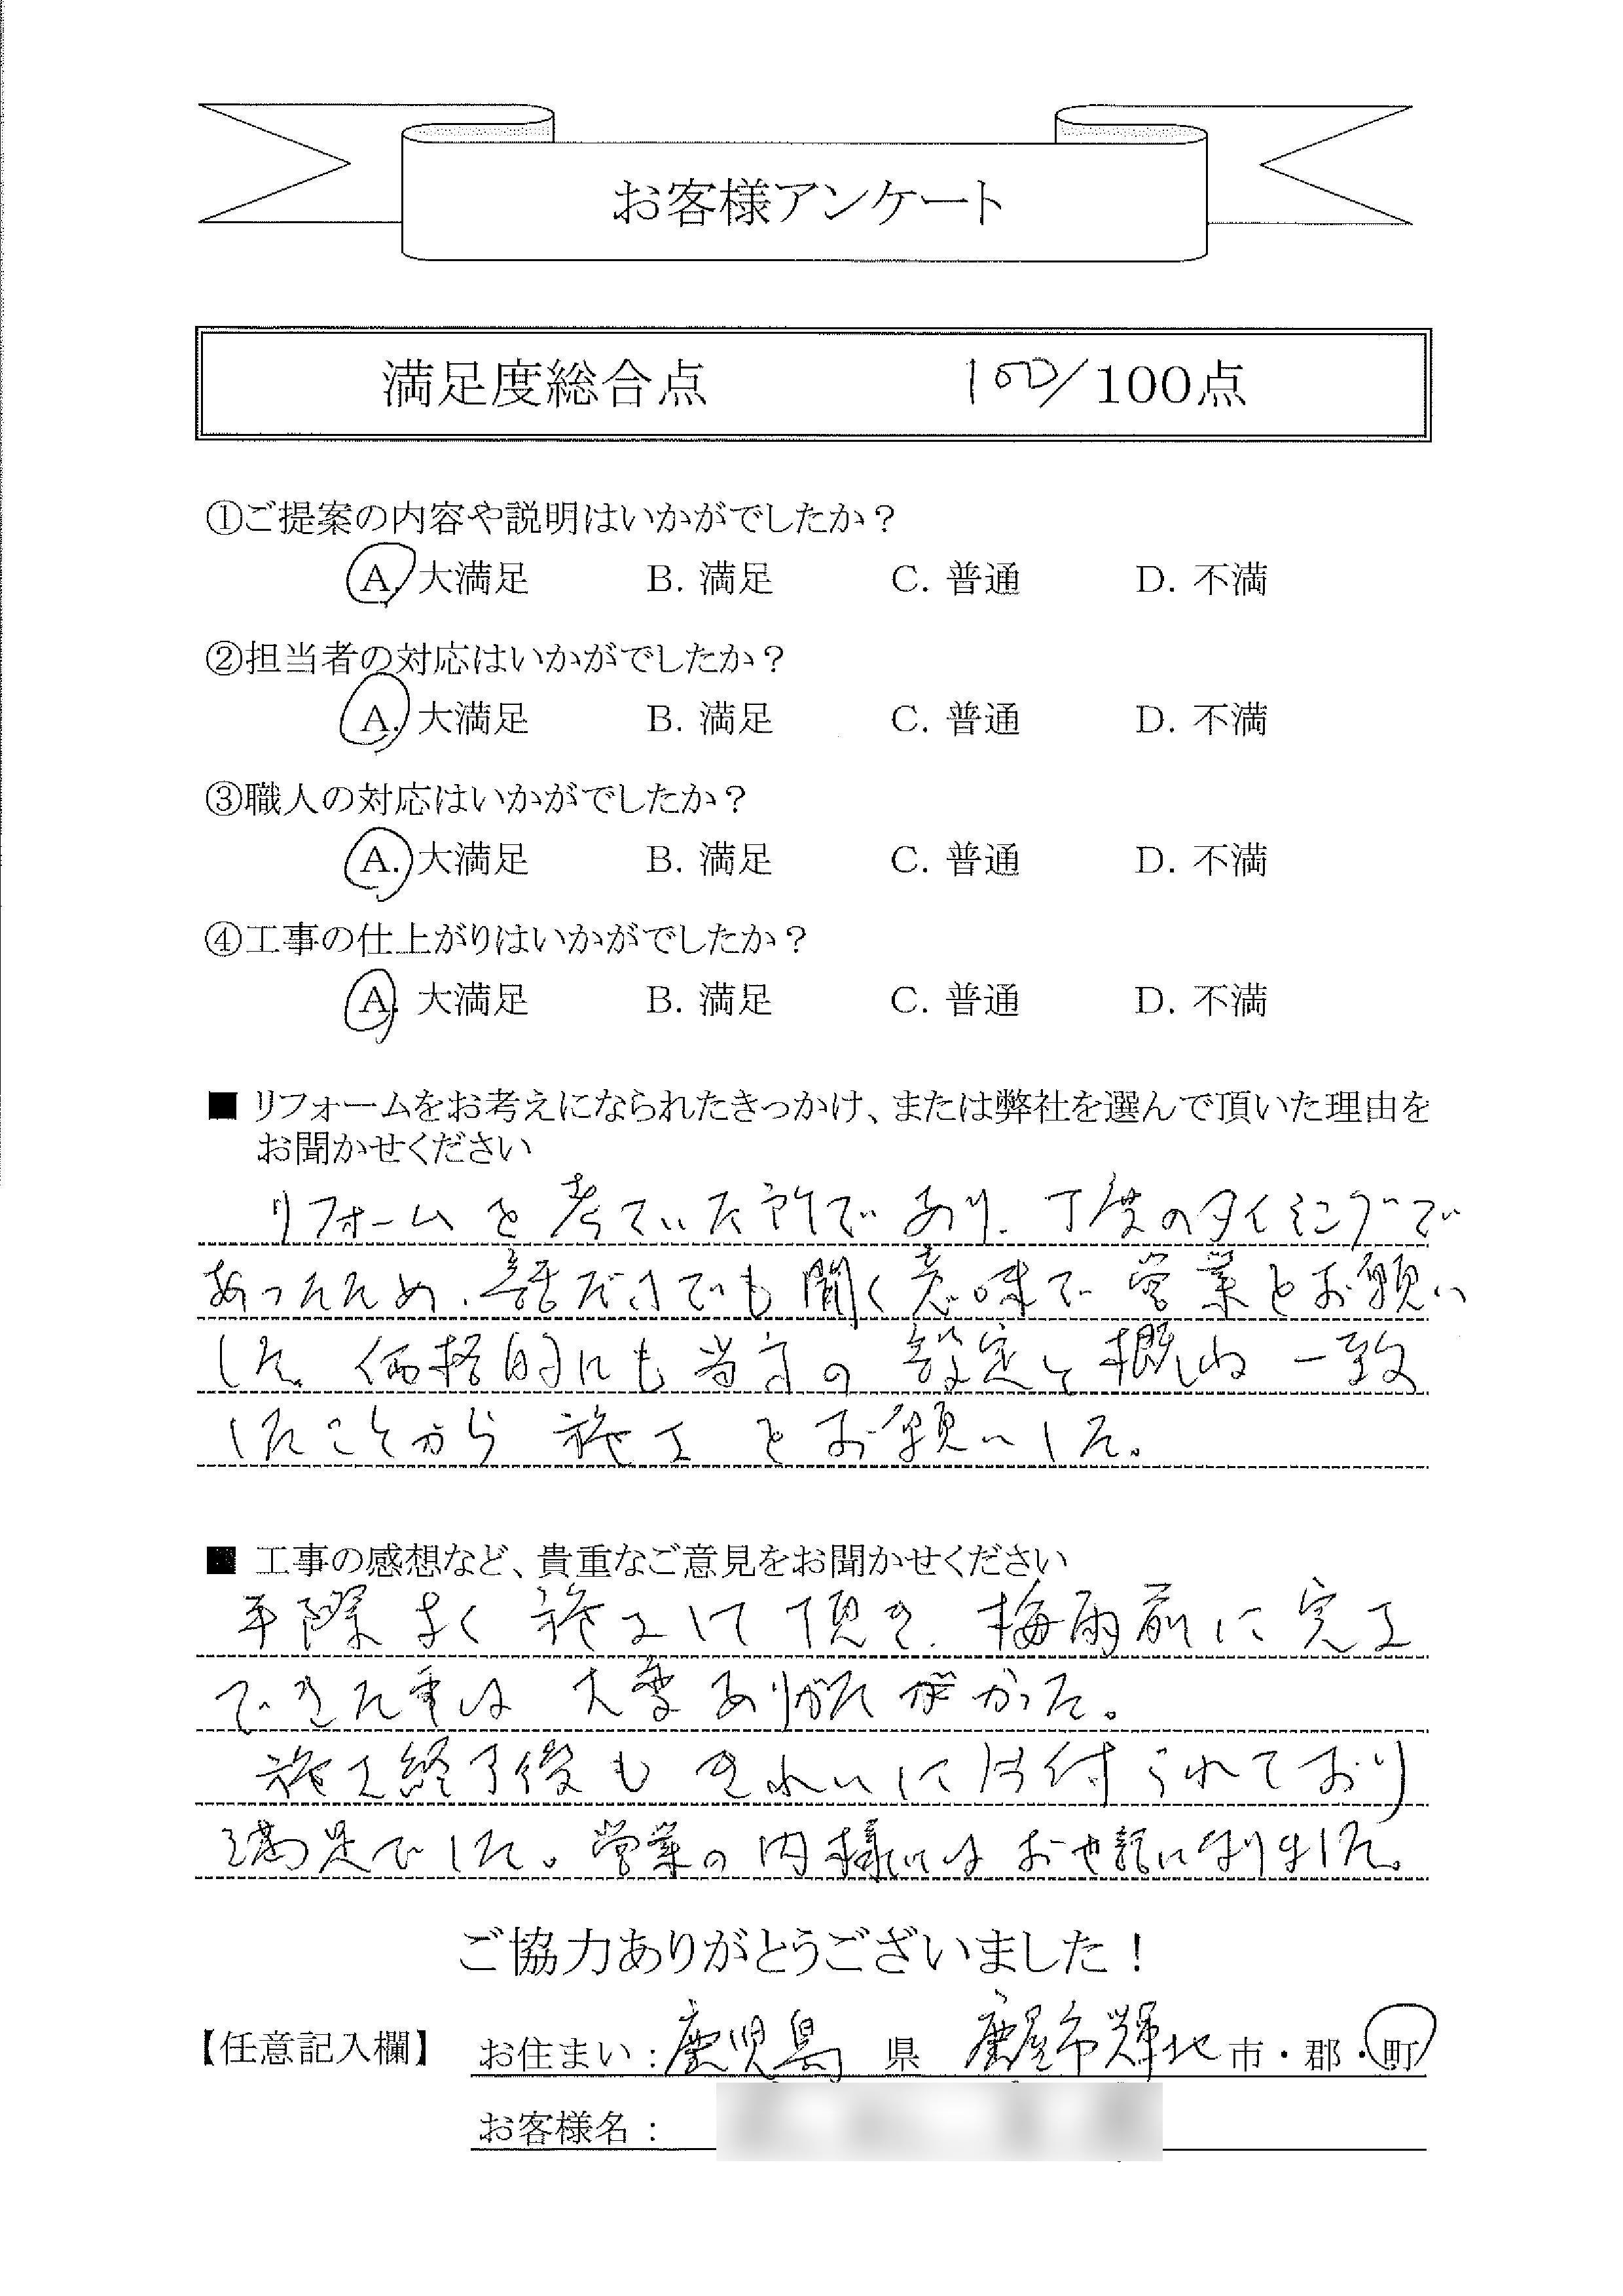 お客様アンケート
満足度総合点 100/100点
①ご提案の内容や説明はいかがでしたか？
A. 大満足 B. 満足 C. 普通 D. 不満
②担当者の対応はいかがでしたか？
A. 大満足 B. 満足 C. 普通 D. 不満
③職人の対応はいかがでしたか？
A. 大満足 B. 満足 C. 普通 D. 不満
④工事の仕上がりはいかがでしたか？
A. 大満足 B. 満足 C. 普通 D. 不満
■ リフォームをお考えになられたきっかけ、または弊社を選んで頂いた理由を
お聞かせください
リフォームを考えていた所であり、丁度のタイミングで
あったため、話だけでも聞く意味で営業をお願い
した。価格的にも当方の設定と概ね一致
したことから施工をお願いした。
■ 工事の感想など、貴重なご意見をお聞かせください
手際よく施工して頂き、梅雨前に完工
できた事は大変ありがたかった。
施工終了後もきれいに片付られており
満足でした。営業の内様にはお世話になりました。
ご協力ありがとうございました！
【任意記入欄】 お住まい：鹿児島 県 鹿屋市輝北 市・郡・町
お客様名：